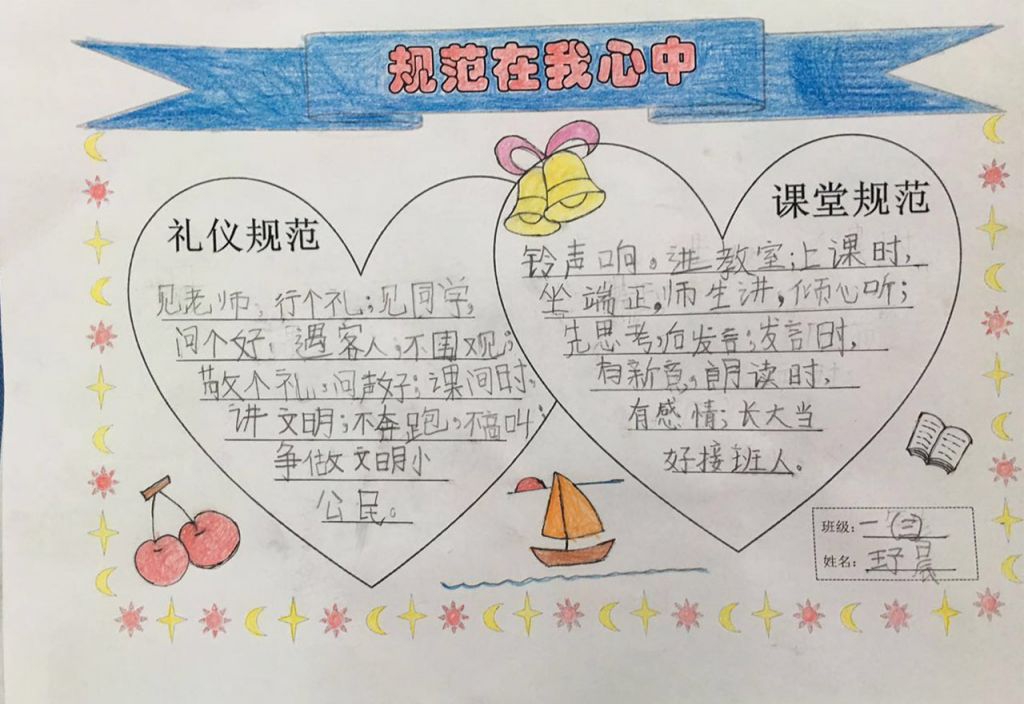 规范在我心中
礼仪规范
见老师,行个礼;见同学,
问个好;遇客人,不围观;
敬个礼,问声好;课间时,
讲文明;不奔跑,不高叫;
争做文明小
公民。
课堂规范
铃声响。进教室;上课时,
坐端正,师生讲,倾心听;
先思考,后发言;发言时,
有新意,朗读时,
有感情;长大当
好接班人。
班级:一(三)
姓名:王子晨